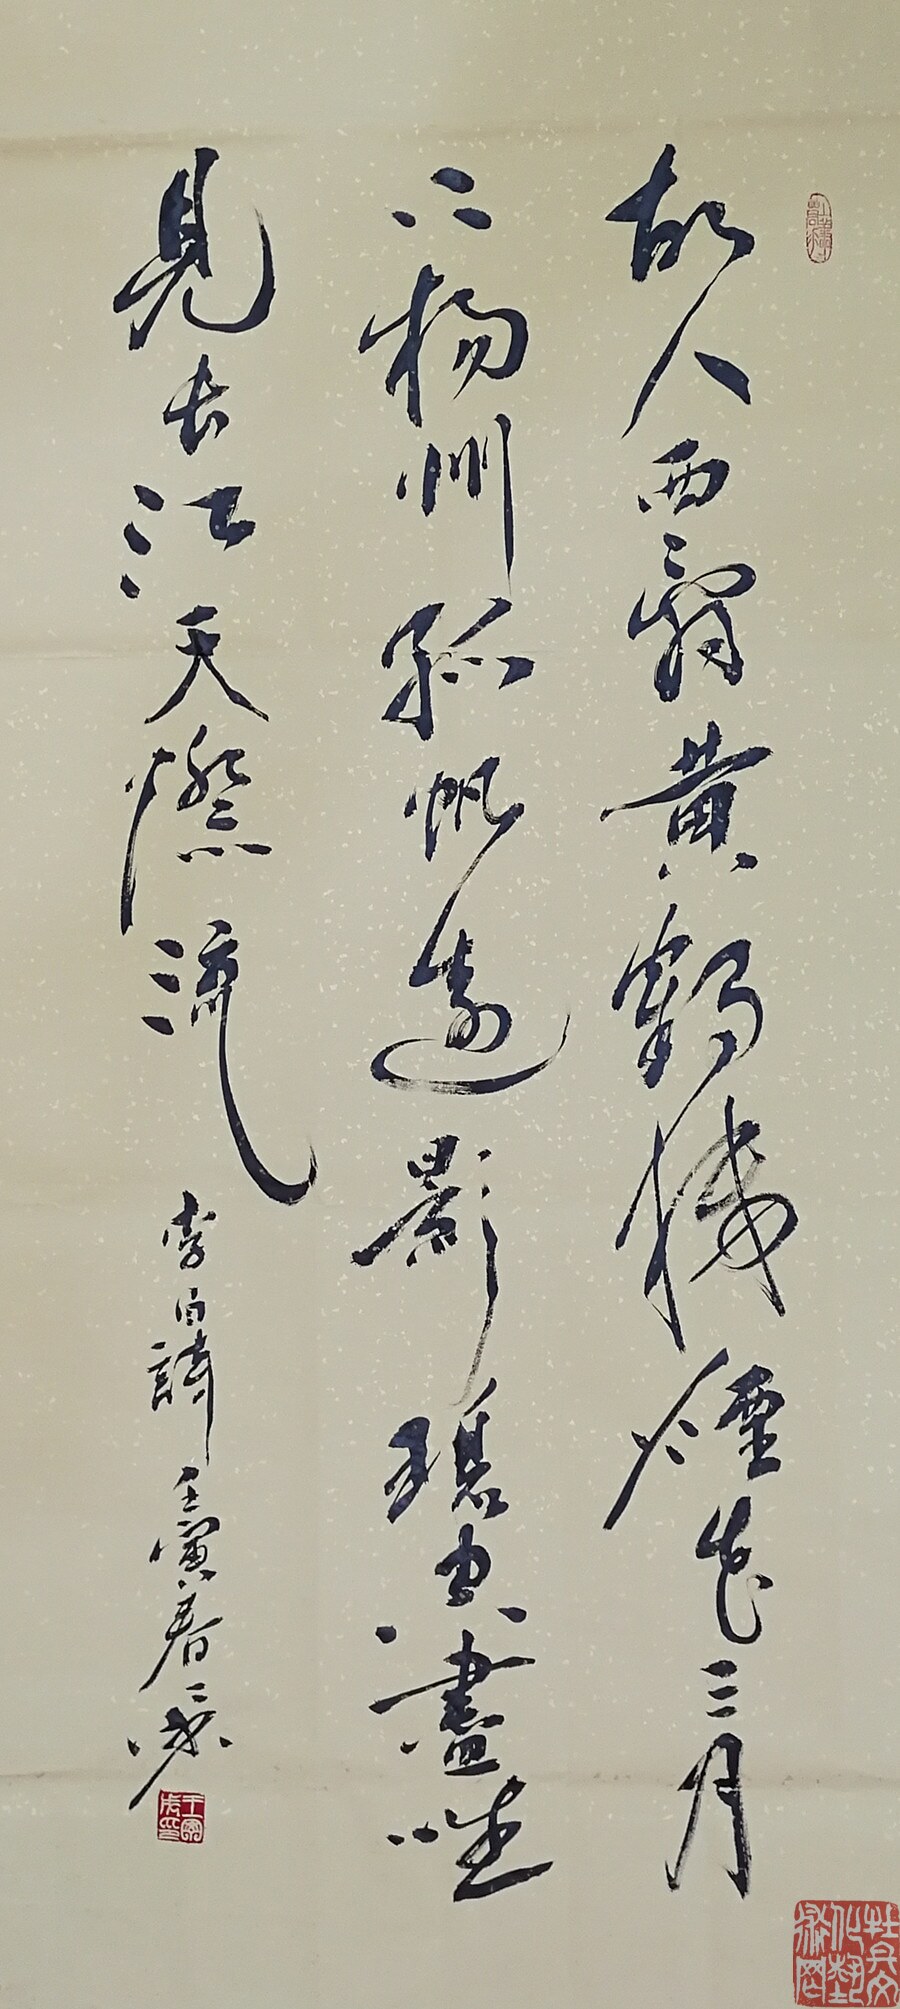 故人西辭黄鶴楼煙花三月
下揚州孤帆遠影碧空盡唯
見長江天際流
李白詩壬寅春